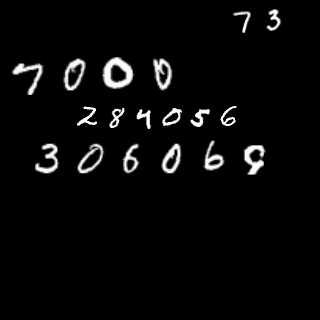 73
7000
284056
306069